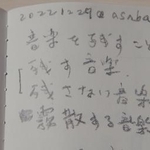 20221229日 asaba
音楽を残すこ
残す音楽
残さない音楽
霧散する音楽